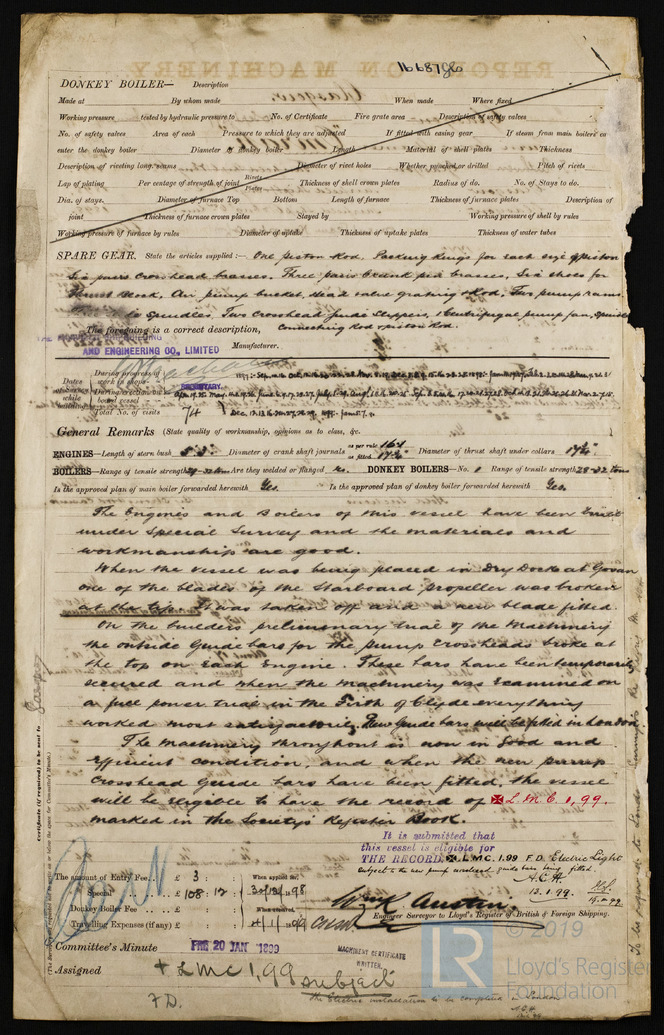 16687 Gls
REPORT ON MACHINERY
DONKEY BOILER— Description
Made at By whom made When made Where fixed
Working pressure tested by hydraulic pressure to No. of Certificate Fire grate area Description of safety valves
No. of safety valves Area of each Pressure to which they are adjusted If fitted with easing gear If steam from main boilers can
enter the donkey boiler Diameter of donkey boiler Length Material of shell plates Thickness
Description of riveting long. seams Diameter of rivet holes Whether punched or drilled Pitch of rivets
Lap of plating Per centage of strength of joint Rivets Plates Thickness of shell crown plates Radius of do. No. of Stays to do.
Dia. of stays. Diameter of furnace Top Bottom Length of furnace Thickness of furnace plates Description of
joint Thickness of furnace crown plates Stayed by Working pressure of shell by rules
Working pressure of furnace by rules Diameter of uptake Thickness of uptake plates Thickness of water tubes
SPARE GEAR. State the articles supplied:— One piston Rod, Packing Rings for each size of piston
Six pairs Crosshead brasses. Three pairs Crank pin brasses, Six shoes for
Thrust block, Air pump bucket, Head valve grating & Rod, Two pump rams
Spindles, Two Crosshead
The foregoing is a correct description, Connecting Rod & piston Rod.
AND ENGINEERING CO., LIMITED Manufacturer.
SECRETARY.
Dates while building
During progress of work in shops
During erection on board vessel
Total No. of visits 74
General Remarks (State quality of workmanship, opinions as to class, &c.
ENGINES—Length of stern bush 5'.3" Diameter of crank shaft journals as per rule 16.1 as fitted 17½" Diameter of thrust shaft under collars 17½"
BOILERS—Range of tensile strength Are they welded or flanged no. DONKEY BOILERS—No. 1 Range of tensile strength 28-32 tons
Is the approved plan of main boiler forwarded herewith Yes. Is the approved plan of donkey boiler forwarded herewith Yes.
The Engines and Boilers of this vessel have been built
under Special Survey and the materials and
workmanship are good.
When the vessel was being placed in Dry Dock at Govan
one of the blades of the Starboard propeller was broken
at the top. It was taken off and a new blade fitted.
On the builders preliminary trial of the machinery
the outside Guide bars for the pump Crossheads broke at
the top on each Engine. These bars have been temporarily
secured and when the machinery was examined on
a full power trial in the Firth of Clyde everything
worked most satisfactorily. New Guide bars will be fitted in London.
The machinery throughout is now in Good and
efficient condition, and when the new pump
Crosshead Guide bars have been fitted, the vessel
will be eligible to have the record of ✠ L.M.C. 1,99.
marked in the Society's Register Book.
It is submitted that
this vessel is eligible for
THE RECORD ✠ L.M.C. 1.99 F.D. Electric Light
Subject to the new pump crosshead guide bars being fitted.
A.C.H.
13.1.99.
The amount of Entry Fee.. £ 3 : : When applied for,
Special .. £ 108 : 12 : 30/12/98
Donkey Boiler Fee .. £ : : When received,
Travelling Expenses (if any) £ : : 4/1/99
Wm K Austin.
Engineer Surveyor to Lloyd's Register of British & Foreign Shipping.
Committee's Minute FRI 20 JAN 1899
Assigned + LMC 1,99 subject
F.D.
MACHINERY CERTIFICATE WRITTEN.
the Electric installation to be completed in London
A.C.H.
Certificate (if required) to be sent to Glasgow
© 2019
LR
Lloyd's Register
Foundation